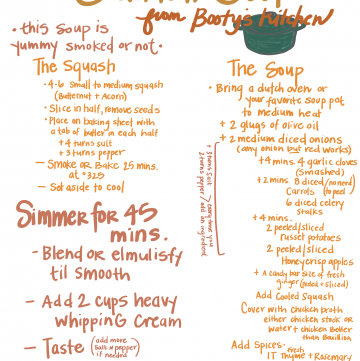 from Booty's Kitchen
• this Soup is
yummy smoked or not •
The Squash
• 4-6 small to medium squash
(Butternut + Acorn)
• Slice in half, remove seeds
• Place on baking sheet with
a tab of butter in each half
+ 4 turns salt
+ 3 turns pepper
— Smoke or Bake 25 mins.
at °325
— Set aside to cool
Simmer for 45
mins.
— Blend or elmulsify
til smooth
— Add 2 cups heavy
whipping cream
— Taste (add more
salt n pepper
if needed)
The Soup
• Bring a dutch oven or
your favorite soup pot
to medium heat
+ 2 glugs of olive oil
+ 2 medium diced onions
(any onion but red works)
+4 mins. 4 garlic cloves
(smashed)
+2 mins. 8 diced/
Carrots
6 diced celery
stalks
+4 mins.
2 peeled/sliced
russet potatoes
2 peeled/sliced
Honeycrisp apples
+ A candy bar size of fresh
ginger (peeled + sliced)
Add Cooled Squash
Cover with chicken broth
either chicken stock or
water + chicken Better
than Bouillon
Add Spices - Fresh
1T Thyme + Rosemary